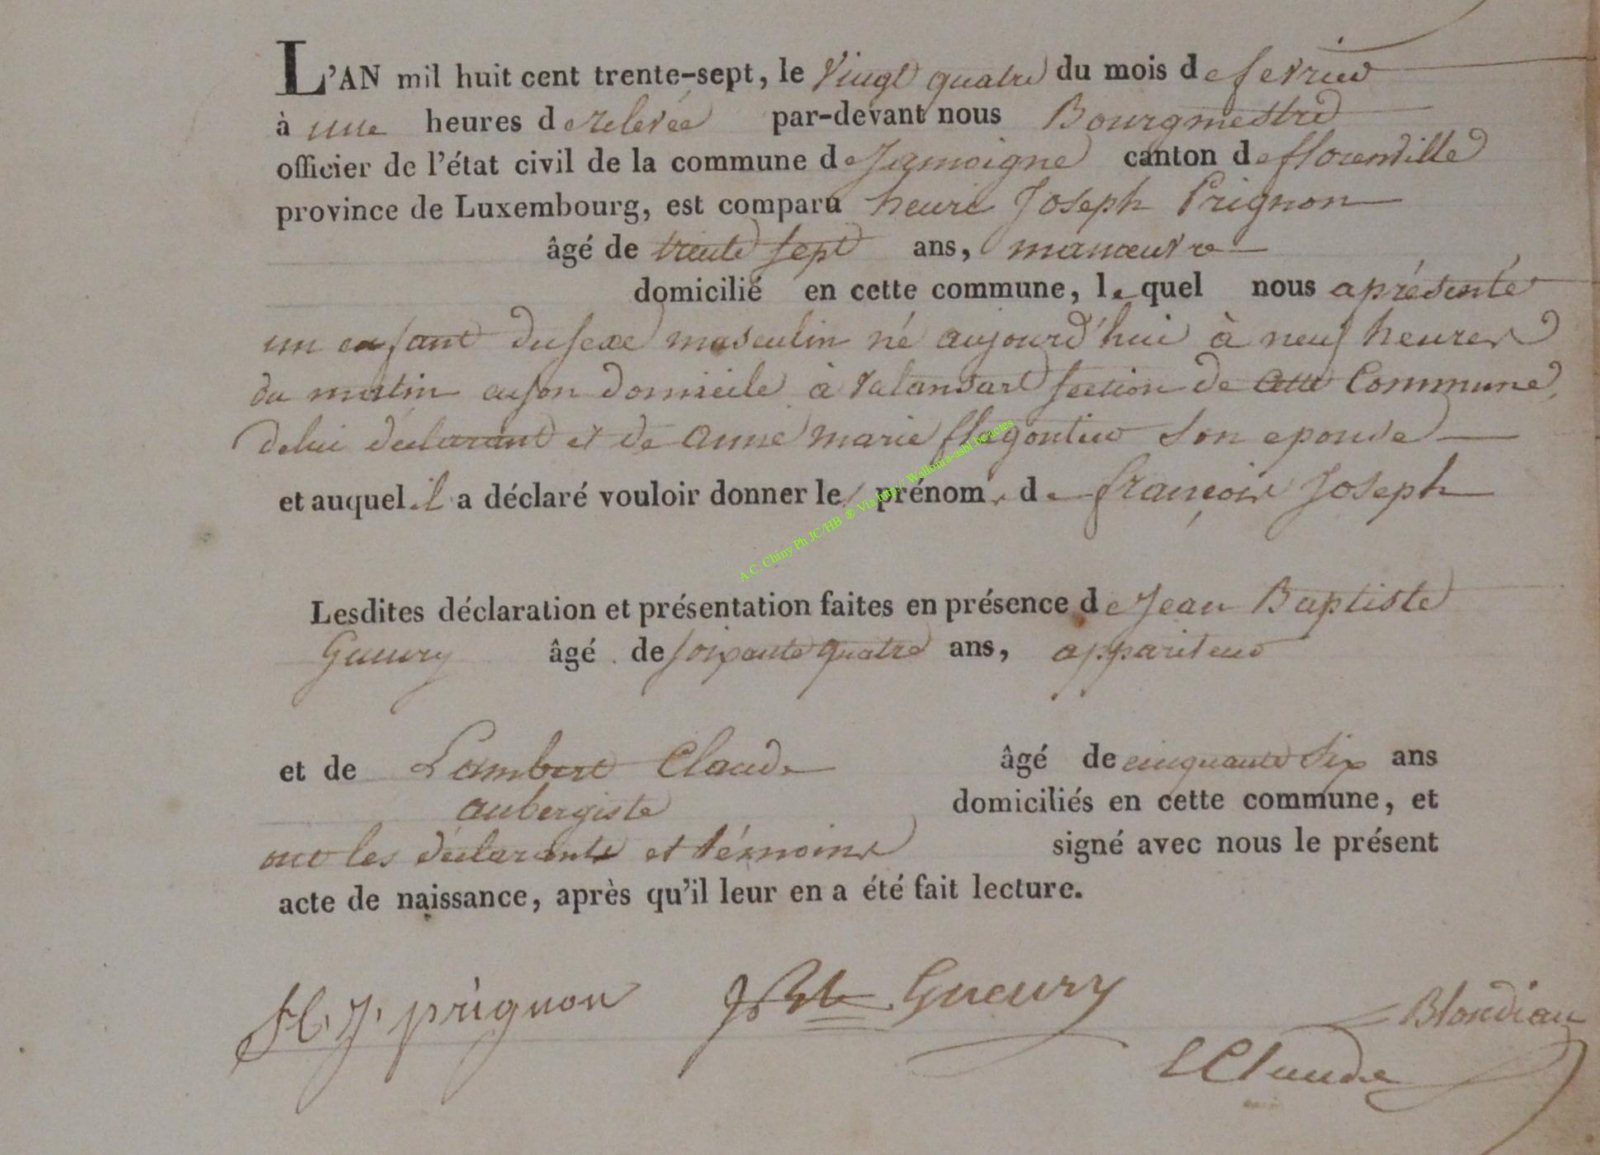 L'AN mil huit cent trente-sept, le Vingt quatre du mois de fevrier
à une heures de relevée par-devant nous Bourgmestre
officier de l'état civil de la commune de Jamoigne canton de florenville
province de Luxembourg, est comparu henri Joseph Prignon
âgé de trente sept ans, manœuvre
domicilié en cette commune, le quel nous a présenté
un enfant du sexe masculin né aujourd'hui à neuf heures
du matin en son domicile à Valansart section de cette Commune,
de lui déclarant et de anne marie son epouse
et auquel il a déclaré vouloir donner les prénoms de françois Joseph
A.C. Chiny Ph JC/HB
Lesdites déclaration et présentation faites en présence de Jean Baptiste
Gueury âgé de soixante quatre ans, appariteur
et de Lambert Claude âgé de cinquante six ans
aubergiste domiciliés en cette commune, et
ont les déclarants et témoins signé avec nous le présent
acte de naissance, après qu'il leur en a été fait lecture.
H. J. prignon JBte Gueury Blondiau
L Claude